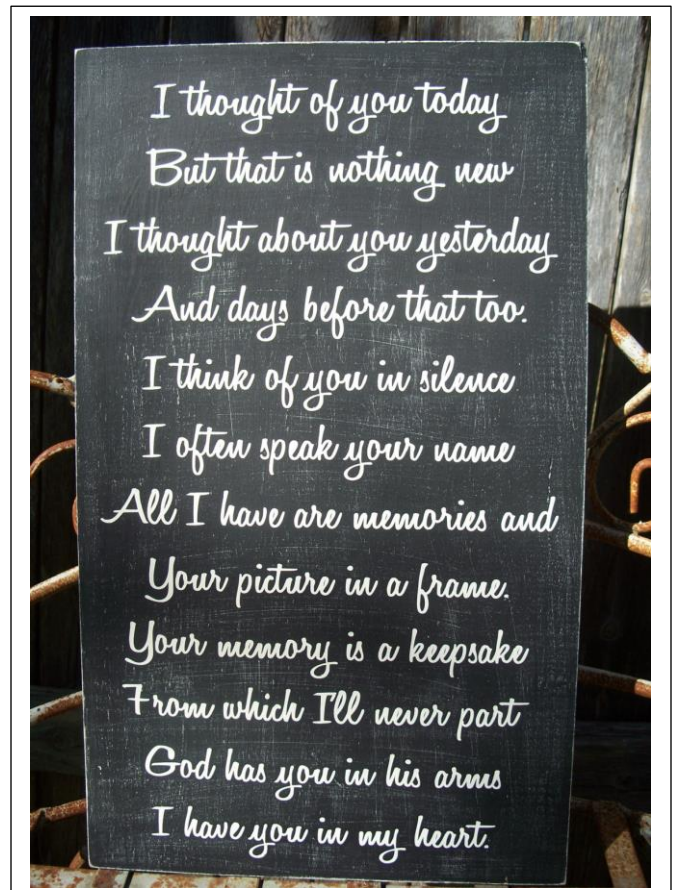 I thought of you today
But that is nothing new
I thought about you yesterday
And days before that too.
I think of you in silence
I often speak your name
All I have are memories and
Your picture in a frame.
Your memory is a keepsake
From which I'll never part
God has you in his arms
I have you in my heart.